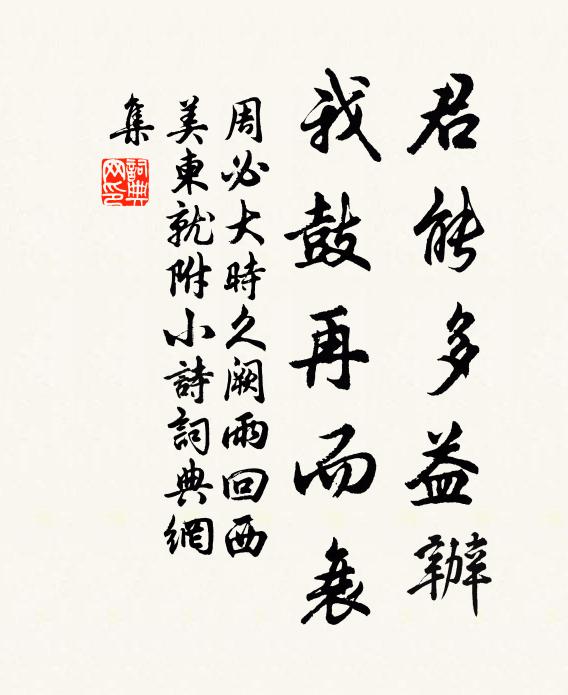 君能多益辦
我鼓再而衰
周必大時久阙雨回西
美東就附小詩詞典網
集
詞典網印